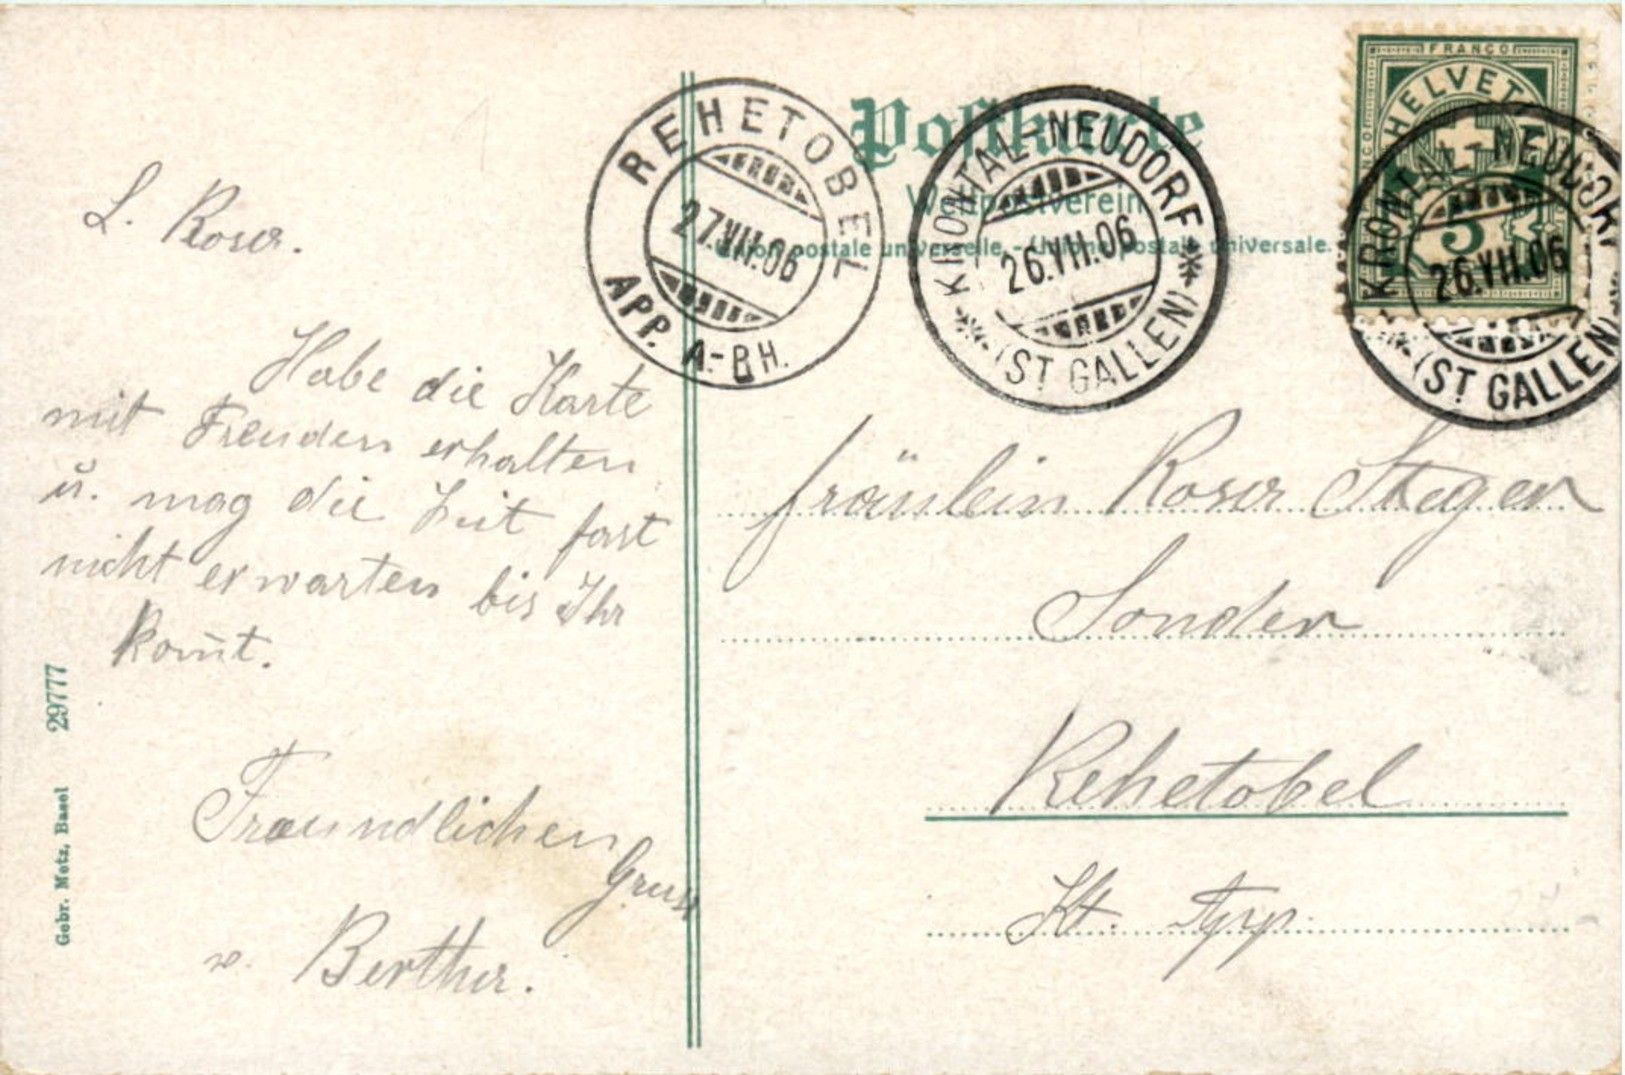 L. Rosa.
Habe die Karte
mit Freuden erhalten
u. mag die Zeit fast
nicht erwarten bis Ihr
kom̄t.
Freundlichen
Gruss
v. Bertha.
Gebr. Metz, Basel 29777
REHETOBEL
27.VII.06
APP. A.-RH.
Postkarte
Weltpostverein
Union postale universelle. - Unione postale universale.
KRONTAL-NEUDORF
26.VII.06
(ST GALLEN)
FRANCO
HELVETIA
5
KRONTAL-NEUDORF
26.VII.06
(ST GALLEN)
Fräulein Rosa
Sonder
Rehetobel
Kt. App.